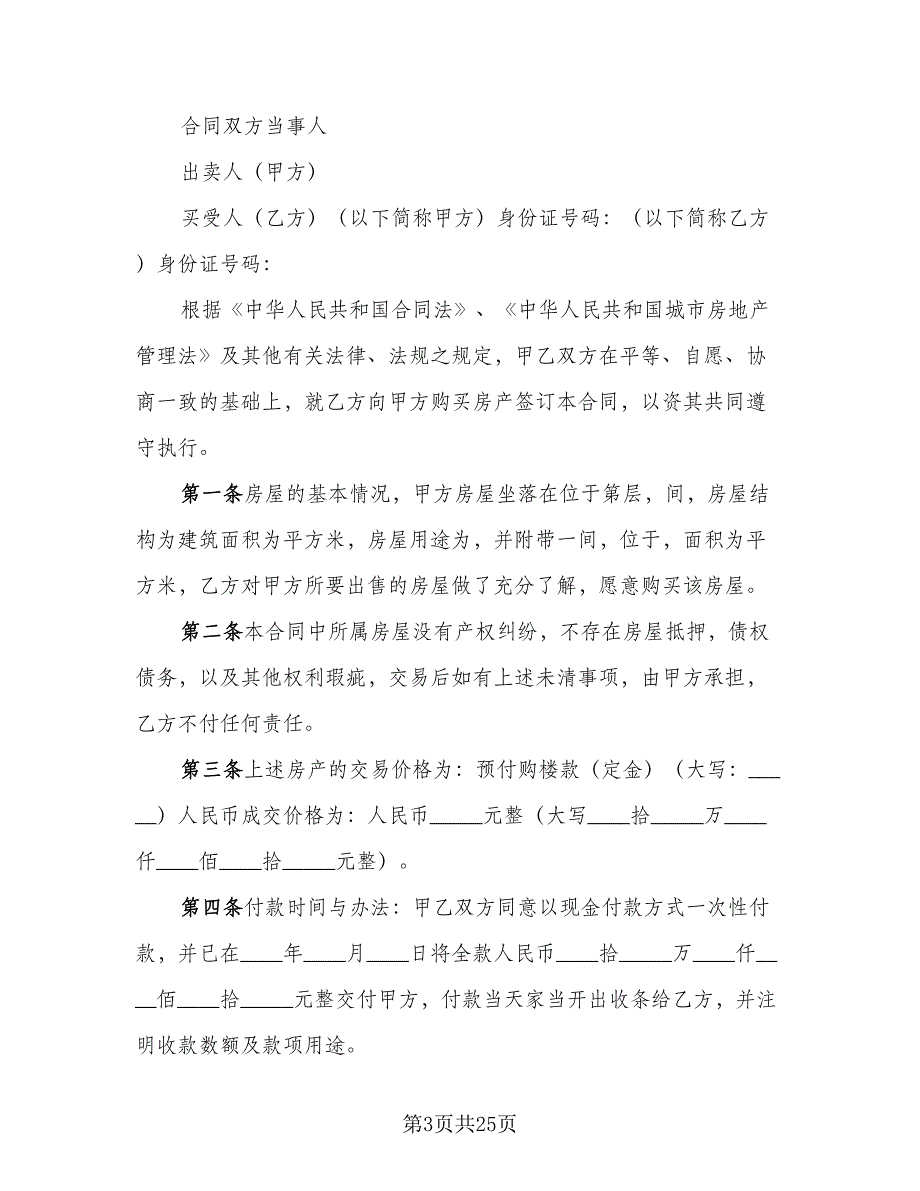 合同双方当事人
出卖人（甲方）
买受人（乙方）（以下简称甲方）身份证号码：（以下简称乙方
）身份证号码：
根据《中华人民共和国合同法》、《中华人民共和国城市房地产
管理法》及其他有关法律、法规之规定，甲乙双方在平等、自愿、协
商一致的基础上，就乙方向甲方购买房产签订本合同，以资其共同遵
守执行。
第一条房屋的基本情况，甲方房屋坐落在位于第层，间，房屋结
构为建筑面积为平方米，房屋用途为，并附带一间，位于，面积为平
方米，乙方对甲方所要出售的房屋做了充分了解，愿意购买该房屋。
第二条本合同中所属房屋没有产权纠纷，不存在房屋抵押，债权
债务，以及其他权利瑕疵，交易后如有上述未清事项，由甲方承担，
乙方不付任何责任。
第三条上述房产的交易价格为：预付购楼款（定金）（大写：___
__）人民币成交价格为：人民币_____元整（大写____拾_____万____
仟____佰____拾_____元整）。
第四条付款时间与办法：甲乙双方同意以现金付款方式一次性付
款，并已在____年____月____日将全款人民币____拾_____万____仟__
__佰____拾_____元整交付甲方，付款当天家当开出收条给乙方，并注
明收款数额及款项用途。
第3页共25页